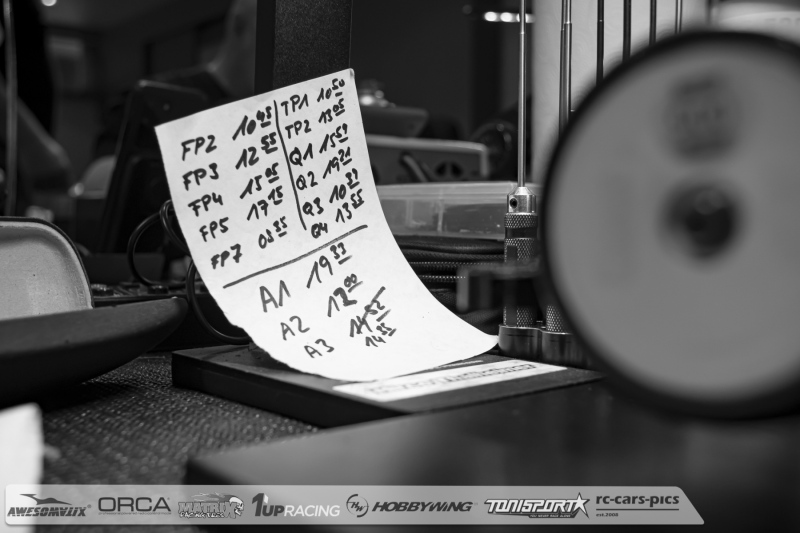 FP2 10⁴⁵
FP3 12⁵⁵
FP4 15⁰⁵
FP5 17¹⁵
FP7 08⁵⁵
TP1 10⁵⁰
TP2 13⁰⁵
Q1 15⁵⁹
Q2 19²¹
Q3 10⁵⁹
Q4 13⁵⁵
A1 19³³
A2 12⁰⁰
A3 14⁵²
14⁵⁵
AWESOMATIX
ORCA
MATRIX
1UP RACING
HW HOBBYWING
TONISPORT
rc-cars-pics
est.2006